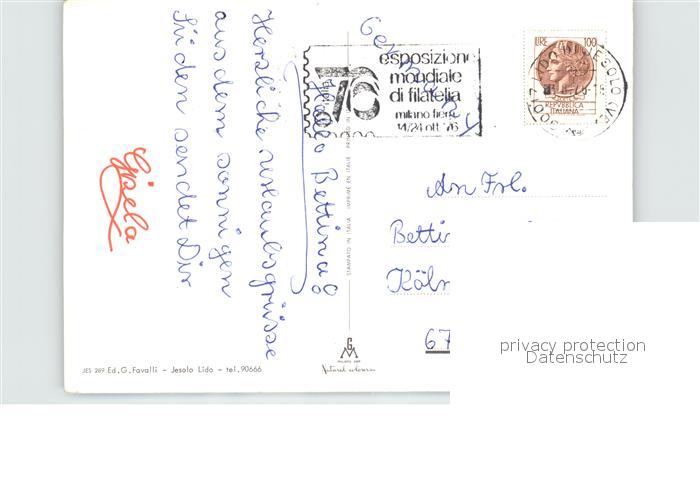 Hallo Bettina!
Herzliche Urlaubsgrüsse
aus dem sonnigen
Süden sendet Dir
Gisela
JES 289 Ed. G. Favalli - Jesolo Lido - tel. 90666
STAMPATO IN ITALIA IMPRIMÉ EN ITALIE PRINTED IN
GM
Natural colour
Germany
76
esposizione
mondiale
di filatelia
milano fiera
14/24 ott. '76
LIRE 100
REPVBBLICA
ITALIANA
LIDO DI JESOLO (VE)
An Frl.
Köln
67
privacy protection
Datenschutz